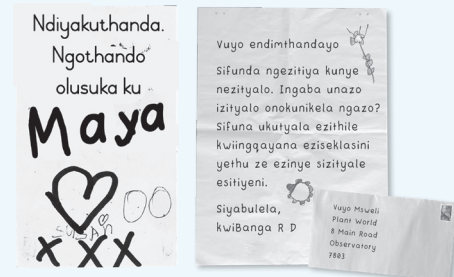 Ndiyakuthanda.
Ngothando
olusuka ku
Maya
SUSAN
X X X
Vuyo endimthandayo
Sifunda ngezitiya kunye
nezityalo. Ingaba unazo
izityalo onokunikela ngazo?
Sifuna ukutyala ezithile
kwiingqayana eziseklasini
yethu ze ezinye sizityale
esitiyeni.
Siyabulela,
kwiBanga R D
Vuyo Msweli
Plant World
8 Main Road
Observatory
7803